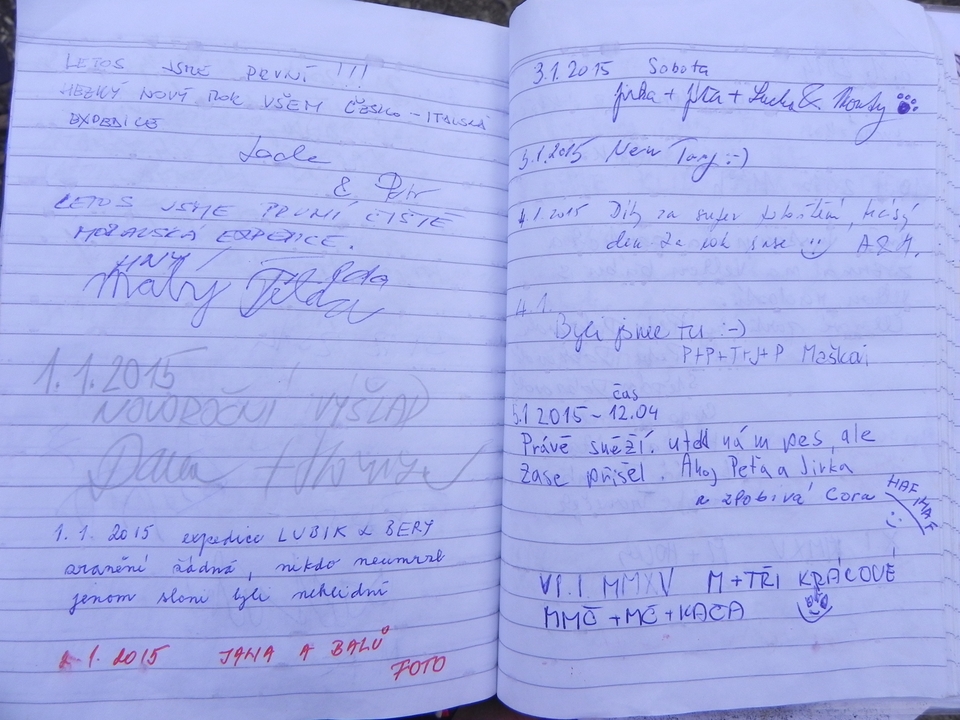 LETOS JSME PRVNÍ !!!
HEZKÝ NOVÝ ROK VŠEM ČESKO-ITALSKÁ
EXPEDICE
& Petr
LETOS JSME PRVNÍ ČISTĚ
MORAVSKÁ EXPEDICE.
HNY
1.1.2015
NOVOROČNÍ VÝŠLAP
Dana +
1.1.2015 expedice LUBIK & BERY
zranění žádná, nikdo neumrzl
jenom sloni byli neklidní
1.2015 JANA A BALŮ
FOTO
3.1.2015 Sobota
Jirka + Jitka + Lucka &
3.1.2015 New
4.1.2015 Díky za super
den za rok zase A&M.
4.1.
Byli jsme tu :-)
P+P+T+J+P
čas
5.1 2015 ~ 12.04
Právě sněží. utekl nám pes, ale
zase přišel. Ahoj Peťa a Jirka
a zlobivá Cora HAF HAF
VI.I MMXV M+TŘI KRÁLOVÉ
MMČ+MČ+KAČA